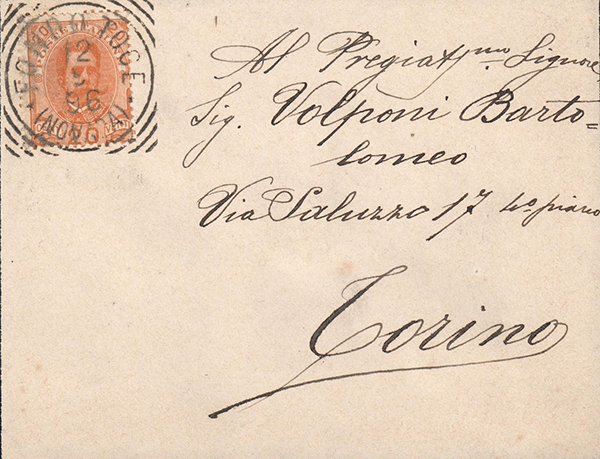 FONDO TOCE
12
96
(NOVARA)
Al Pregiat/mo Signore
Sig. Volponi Barto-
lomeo
Via Saluzzo 17 4º piano
Torino